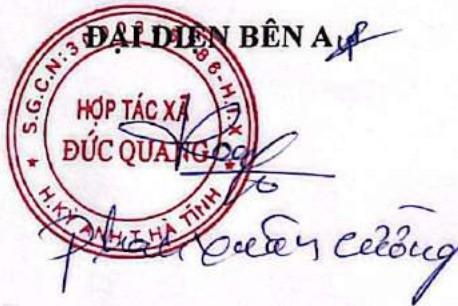 ĐẠI DIỆN BÊN A
HỢP TÁC XÃ
ĐỨC QUANG
H.KỲ ANH-T.HÀ TĨNH
Phan Xuân Cường